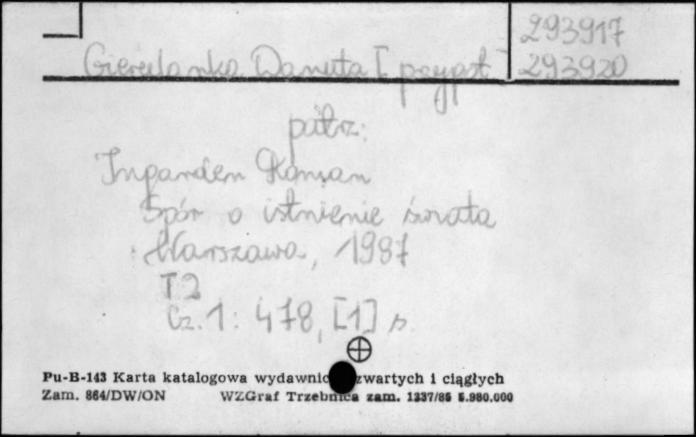 293917
Gierulanka Danuta [ przypś
293920
patrz:
Ingarden Roman
Spór o istnienie świata
Warszawa, 1987
T 2
Cz. 1: 478, [1] s.
Pu-B-143 Karta katalogowa zwartych i ciągłych
Zam. 864/DW/ON WZGraf Trzebnica zam. 1337/85 5.980.000